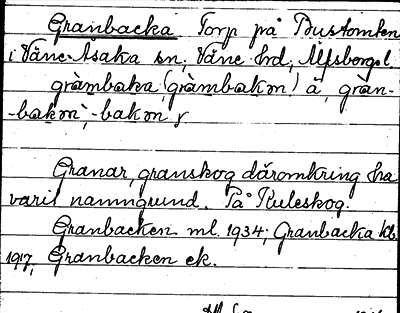 Granbacka Torp på Bustomten
i Väne-Åsaka sn, Väne hd, Älfsborgs l.
gràmbaka (gràmbakɷn) å, gràn-
-bakɷn, -bakɷn γ
Granar, granskog däromkring ha
varit namngrund. På Kuleskog.
Granbacken ml. 1934; Granbacka kb.
1917, Granbacken ek.